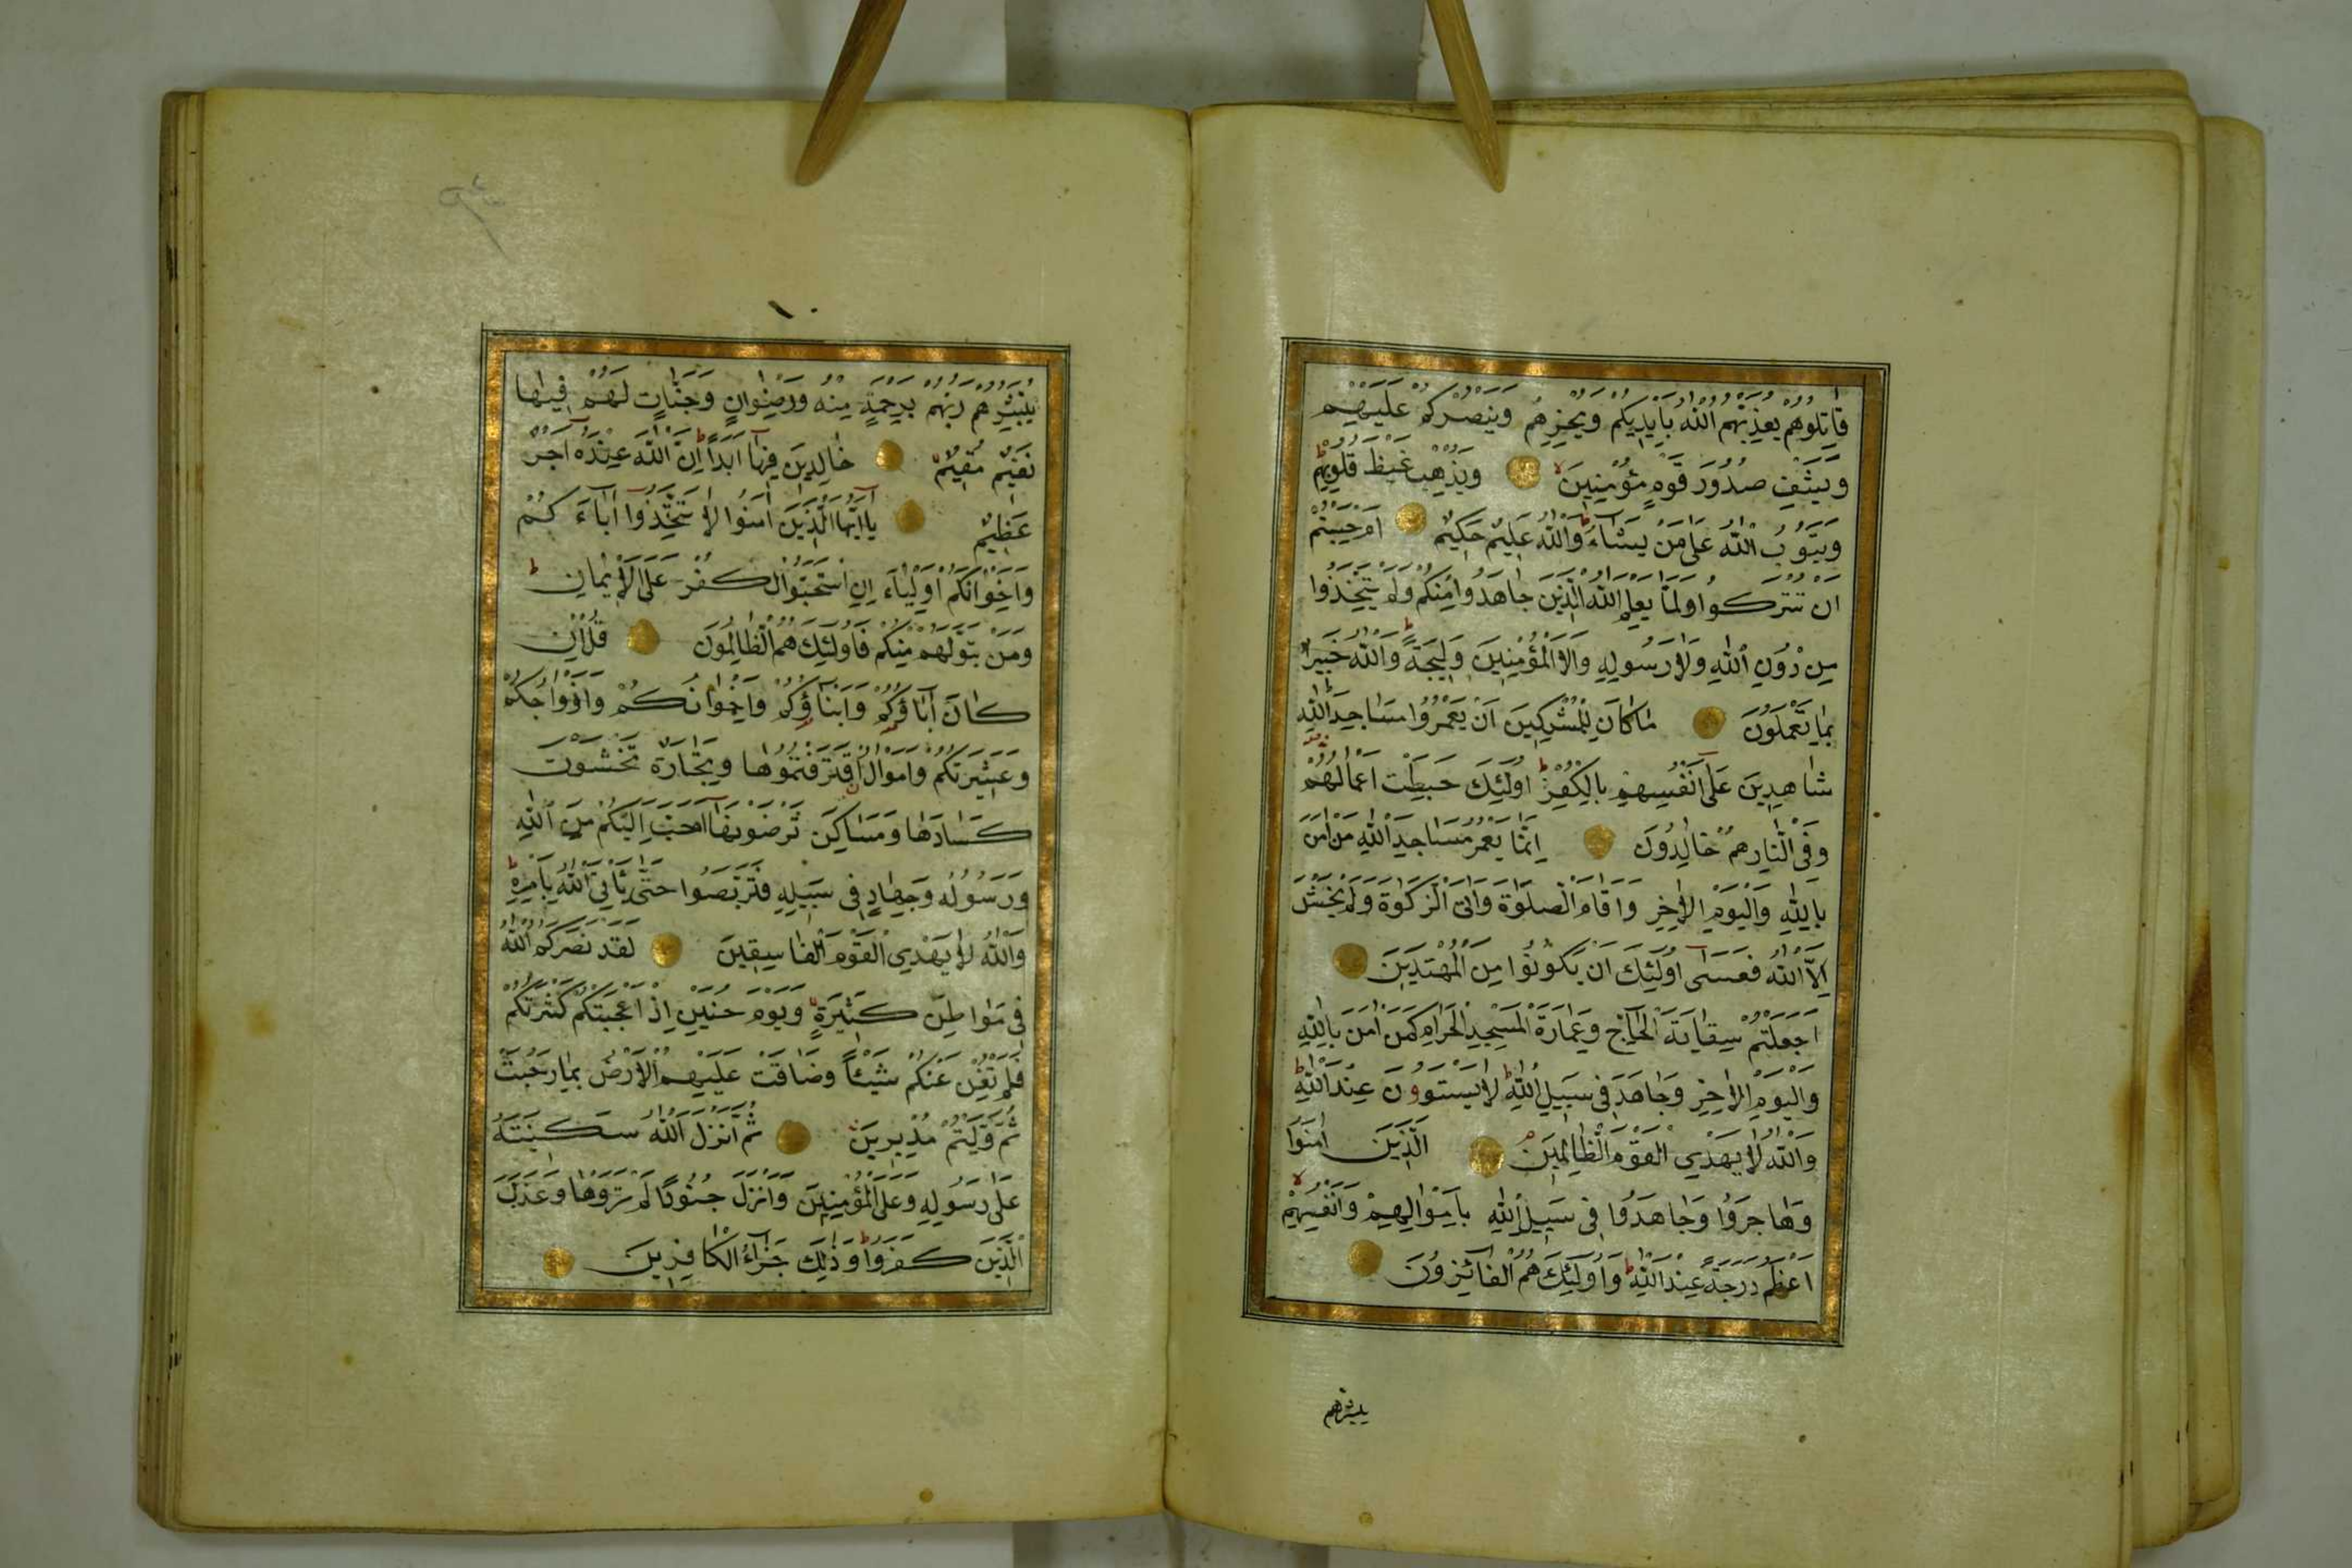 قَاتِلُوهُمْ يُعَذِّبْهُمُ اللّٰهُ بِاَيْدِيكُمْ وَيُخْزِهِمْ وَيَنْصُرْكُمْ عَلَيْهِمْ
وَيَشْفِ صُدُورَ قَوْمٍ مُؤْمِنِينَ وَيُذْهِبْ غَيْظَ قُلُوبِهِمْ
وَيَتُوبُ اللّٰهُ عَلٰى مَنْ يَشَاءُ وَاللّٰهُ عَلِيمٌ حَكِيمٌ اَمْ حَسِبْتُمْ
اَنْ تُتْرَكُوا وَلَمَّا يَعْلَمِ اللّٰهُ الَّذِينَ جَاهَدُوا مِنْكُمْ وَلَمْ يَتَّخِذُوا
مِنْ دُونِ اللّٰهِ وَلَا رَسُولِهِ وَلَا الْمُؤْمِنِينَ وَلِيجَةً وَاللّٰهُ خَبِيرٌ
بِمَا تَعْمَلُونَ مَا كَانَ لِلْمُشْرِكِينَ اَنْ يَعْمُرُوا مَسَاجِدَ اللّٰهِ
شَاهِدِينَ عَلٰى اَنْفُسِهِمْ بِالْكُفْرِ اُولٰئِكَ حَبِطَتْ اَعْمَالُهُمْ
وَفِى النَّارِ هُمْ خَالِدُونَ اِنَّمَا يَعْمُرُ مَسَاجِدَ اللّٰهِ مَنْ اٰمَنَ
بِاللّٰهِ وَالْيَوْمِ الْاٰخِرِ وَاَقَامَ الصَّلٰوةَ وَاٰتَى الزَّكٰوةَ وَلَمْ يَخْشَ
اِلَّا اللّٰهَ فَعَسٰى اُولٰئِكَ اَنْ يَكُونُوا مِنَ الْمُهْتَدِينَ
اَجَعَلْتُمْ سِقَايَةَ الْحَاجِّ وَعِمَارَةَ الْمَسْجِدِ الْحَرَامِ كَمَنْ اٰمَنَ بِاللّٰهِ
وَالْيَوْمِ الْاٰخِرِ وَجَاهَدَ فِى سَبِيلِ اللّٰهِ لَا يَسْتَوُونَ عِنْدَ اللّٰهِ
وَاللّٰهُ لَا يَهْدِى الْقَوْمَ الظَّالِمِينَ الَّذِينَ اٰمَنُوا
وَهَاجَرُوا وَجَاهَدُوا فِى سَبِيلِ اللّٰهِ بِاَمْوَالِهِمْ وَاَنْفُسِهِمْ
اَعْظَمُ دَرَجَةً عِنْدَ اللّٰهِ وَاُولٰئِكَ هُمُ الْفَائِزُونَ
يبشرهم
١٠
يُبَشِّرُهُمْ رَبُّهُمْ بِرَحْمَةٍ مِنْهُ وَرِضْوَانٍ وَجَنَّاتٍ لَهُمْ فِيهَا
نَعِيمٌ مُقِيمٌ خَالِدِينَ فِيهَا اَبَدًا اِنَّ اللّٰهَ عِنْدَهُ اَجْرٌ
عَظِيمٌ يَا اَيُّهَا الَّذِينَ اٰمَنُوا لَا تَتَّخِذُوا اٰبَاءَكُمْ
وَاِخْوَانَكُمْ اَوْلِيَاءَ اِنِ اسْتَحَبُّوا الْكُفْرَ عَلَى الْاِيمَانِ
وَمَنْ يَتَوَلَّهُمْ مِنْكُمْ فَاُولٰئِكَ هُمُ الظَّالِمُونَ قُلْ اِنْ
كَانَ اٰبَاؤُكُمْ وَاَبْنَاؤُكُمْ وَاِخْوَانُكُمْ وَاَزْوَاجُكُمْ
وَعَشِيرَتُكُمْ وَاَمْوَالٌ اقْتَرَفْتُمُوهَا وَتِجَارَةٌ تَخْشَوْنَ
كَسَادَهَا وَمَسَاكِنُ تَرْضَوْنَهَا اَحَبَّ اِلَيْكُمْ مِنَ اللّٰهِ
وَرَسُولِهِ وَجِهَادٍ فِى سَبِيلِهِ فَتَرَبَّصُوا حَتّٰى يَاْتِىَ اللّٰهُ بِاَمْرِهِ
وَاللّٰهُ لَا يَهْدِى الْقَوْمَ الْفَاسِقِينَ لَقَدْ نَصَرَكُمُ اللّٰهُ
فِى مَوَاطِنَ كَثِيرَةٍ وَيَوْمَ حُنَيْنٍ اِذْ اَعْجَبَتْكُمْ كَثْرَتُكُمْ
فَلَمْ تُغْنِ عَنْكُمْ شَيْئًا وَضَاقَتْ عَلَيْكُمُ الْاَرْضُ بِمَا رَحُبَتْ
ثُمَّ وَلَّيْتُمْ مُدْبِرِينَ ثُمَّ اَنْزَلَ اللّٰهُ سَكِينَتَهُ
عَلٰى رَسُولِهِ وَعَلَى الْمُؤْمِنِينَ وَاَنْزَلَ جُنُودًا لَمْ تَرَوْهَا وَعَذَّبَ
الَّذِينَ كَفَرُوا وَذٰلِكَ جَزَاءُ الْكَافِرِينَ